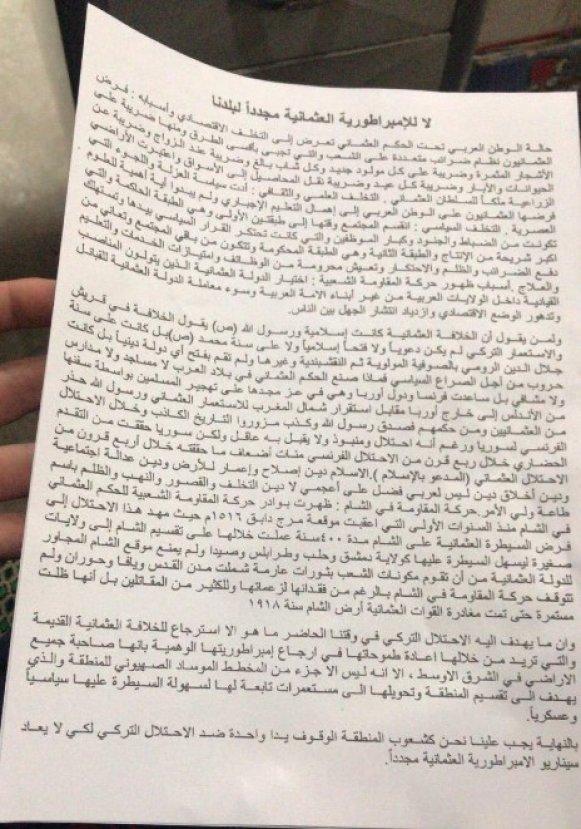 لا للإمبراطورية العثمانية مجدداً لبلدنا
حالة الوطن العربي تحت الحكم العثماني تعرض إلى التخلف الاقتصادي وأسبابه : فرض
العثمانيون نظام ضرائب متعددة على الشعب والتي تجبى بأقسى الطرق ومنها ضريبة على
الأشجار المثمرة وضريبة على كل مولود جديد وكل شاب بالغ وضريبة عند الزواج وضريبة عن
الحيوانات والآبار وضريبة كل عيد وضريبة نقل المحاصيل إلى الأسواق واعتبرت الأراضي
الزراعية ملكاً للسلطان العثماني . التخلف العلمي والثقافي : أدت سياسة العزلة والجوء التي
فرضها العثمانيون على الوطن العربي إلى إهمال التعليم الإجباري ولم يبدوا أية أهمية للعلوم
العصرية . التخلف السياسي : انقسم المجتمع وقتها إلى طبقتين الأولى وهي الطبقة الحاكمة والتي
تكونت من الضباط والجنود وكبار الموظفين والتي كانت تحتكر القرار السياسي بيدها وتستهلك
اكبر شريحة من الإنتاج والطبقة الثانية وهي الطبقة المحكومة وتتكون من باقي المجتمع وتعاني من
دفع الضرائب والظلم والاحتكار وتعيش محرومة من الوظائف وامتيازات الخدمات والتعليم
والعلاج .أسباب ظهور حركة المقاومة الشعبية : اختيار الدولة العثمانية الذين يتولون المناصب
القيادية داخل الولايات العربية من غير أبناء الامة العربية وسوء معاملة الدولة العثمانية للقبائل
وتدهور الوضع الاقتصادي وازدياد انتشار الجهل بين الناس.
ولمن يقول أن الخلافة العثمانية كانت إسلامية ورسول الله (ص) يقول الخلافة في قريش
والاستعمار التركي لم يكن دعوياً ولا فتحاً إسلامياً ولا على سنة محمد (ص)بل كانت على سنة
جلال الدين الرومي بالصوفية المولوية ثم النقشبندية وغيرها ولم تقم بفتح أي دولة دينياً بل كانت
حروب من أجل الصراع السياسي فماذا صنع الحكم العثماني في بلاد العرب لا مساجد ولا مدارس
ولا مشافي بل ساعدت فرنسا ودول أوربا وهي في عز مجدها على تهجير المسلمين بواسطة سفنها
من الأندلس إلى خارج أوربا مقابل استقرار شمال المغرب للاستعمار العثماني ورسول الله حذر
من العثمانيين ومن حكمهم فصدق رسول الله وكذب مزوروا التاريخ الكاذب وخلال الاحتلال
الفرنسي لسوريا ورغم أنه احتلال ومنبوذ ولا يقبل به عاقل ولكن سوريا حققت من التقدم
الحضاري خلال ربع قرن من الاحتلال الفرنسي مئات أضعاف ما حققته خلال أربع قرون من
الاحتلال العثماني (المدعو بالإسلام ).الاسلام دين إصلاح وإعمار للأرض ودين عدالة اجتماعية
ودين أخلاق دين ليس لعربي فضل على أعجمي لا دين التخلف والقصور والنهب والظلم باسم
طاعة ولي الأمر.حركة المقاومة في الشام : ظهرت بوادر حركة المقاومة الشعبية للحكم العثماني
في الشام منذ السنوات الأولى التي اعقبت موقعة مرج دابق ١٥١٦م حيث مهد هذا الاحتلال إلى
فرض السيطرة العثمانية على الشام مدة ٤٠٠سنة عملت خلالها على تقسيم الشام إلى ولايات
صغيرة ليسهل السيطرة عليها كولاية دمشق وحلب وطرابلس وصيدا ولم يمنع موقع الشام المجاور
للدولة العثمانية من أن تقوم مكونات الشعب بثورات عارمة شملت مدن القدس ويافا وحوران ولم
تتوقف حركة المقاومة في الشام بالرغم من فقدانها لزعمائها وللكثير من المقاتلين بل أنها ظلت
مستمرة حتى تمت مغادرة القوات العثمانية أرض الشام سنة ١٩١٨
وان ما يهدف اليه الاحتلال التركي في وقتنا الحاضر ما هو الا استرجاع للخلافة العثمانية القديمة
والتي تريد من خلالها اعادة طموحاتها في ارجاع إمبراطوريتها الوهمية بانها صاحبة جميع
الاراضي في الشرق الاوسط ، الا انه ليس الا جزء من المخطط الموساد الصهيوني للمنطقة والذي
يهدف الى تقسيم المنطقة وتحويلها الى مستعمرات تابعة لها لسهولة السيطرة عليها سياسياً
وعسكرياً.
بالنهاية يجب علينا نحن كشعوب المنطقة الوقوف يدا واحدة ضد الاحتلال التركي لكي لا يعاد
سيناريو الامبراطورية العثمانية مجدداً.